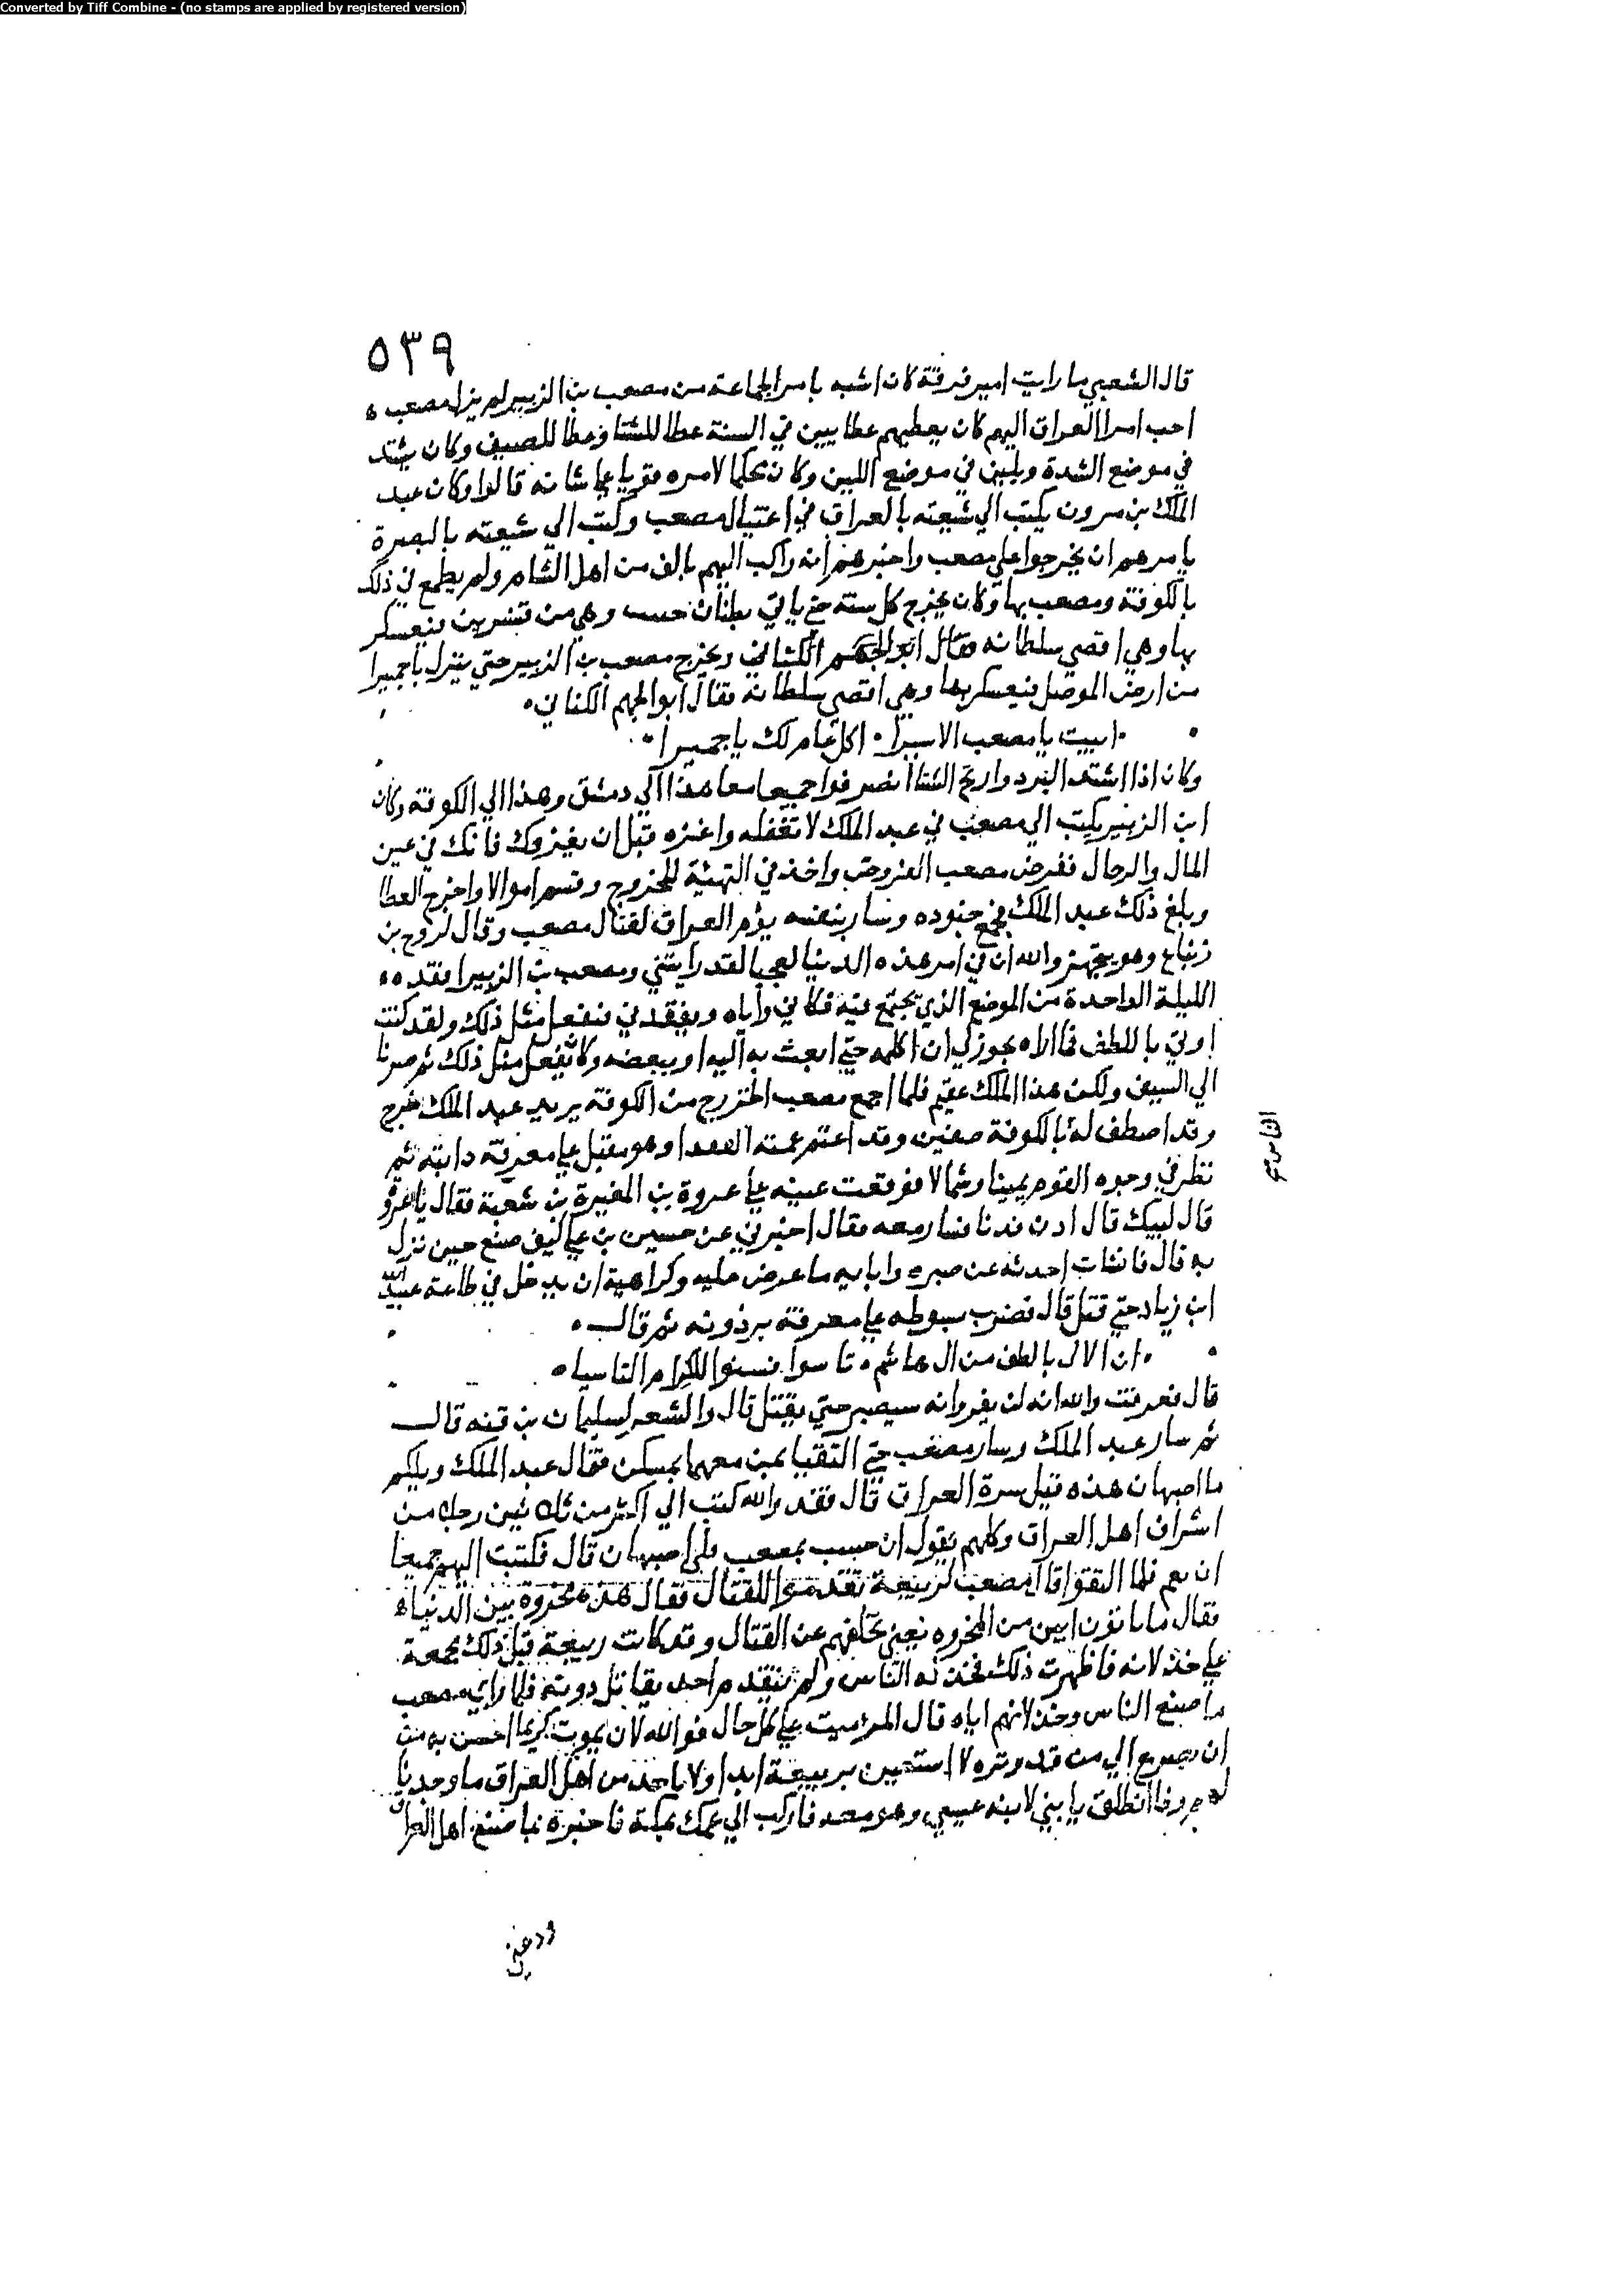 Converted by Tiff Combine - (no stamps are applied by registered version)
٥٣٩
قال الشعبي ما رايت امير فرقة كان اشبه بامرا الجماعة من مصعب بن الزبير لم يزل مصعب
احب امرا العراق اليهم كان يعطيهم عطايين في السنة عطا للشتا وعطا للصيف وكان يشتد
في موضع الشدة ويلين في موضع اللين وكان محكما لامره مقويا علي شانه قالوا وكان عبد
الملك بن مرون يكتب الي شيعته بالعراق في اغتيال مصعب وكتب الي شيعته بالبصرة
يامرهم ان يخرجوا علي مصعب واخبرهم انه راكب اليهم بالف من اهل الشام ولم يطمع في ذلك
بالكوفة ومصعب بها وكان يخرج كل سنة حتي ياتي بطنان حبيب وهي من قنسرين فيعسكر
بها وهي اقصي سلطانه فقال ابو الجهم الكناني ويخرج مصعب بن الزبير حتي ينزل باجميرا
من ارض الموصل فيعسكر بها وهي اقصي سلطانه فقال ابو الجهم الكناني
ابيت يا مصعب الا سيرا اكل عام لك باجميرا
وكان اذا اشتد البرد وارتج الشتا انصرفوا جميعا معا هذا الي دمشق وهذا الي الكوفة وكان
ابن الزبير يكتب الي مصعب في عبد الملك لا تغفله واغزه قبل ان يغزوك فانك في عين
المال والرجال ففرض مصعب الفروض واخذ في التهيئة للخروج وقسم اموالا واخرج العطا
وبلغ ذلك عبد الملك فجمع جنوده وسار بنفسه يؤم العراق لقتال مصعب وقال لروح بن
زنباع وهو يتجهز والله ان في امر هذه الدنيا لعجبا لقد رايتني ومصعب بن الزبير افقده
الليلة الواحدة من الموضع الذي نجتمع فيه فكاني واياه ويفقدني فيفعل مثل ذلك ولقد كنت
اوتي باللطف فما اراه يجوز لي ان اكله حتي ابعث به اليه او ببعضه وكان يفعل مثل ذلك ثم صرنا
الي السيف ولكن هذا الملك عقيم فلما اجمع مصعب الخروج من الكوفة يريد عبد الملك خرج
وقد اصطف له بالكوفة صفين وقد اعتم عمته القفدا وهو مقبل علي معرفة دابته ثم
نظر في وجوه القوم يمينا وشمالا فوقعت عينه علي عروة بن المغيرة بن شعبة فقال يا عروة
قال لبيك قال ادن فدنا فسار معه فقال اخبرني عن حسين بن علي كيف صنع حين نزل
به قال فانشات احدثه عن صبره وابايه ما عرض عليه وكراهية ان يدخل في طاعة عبيد الله
ابن زياد حتي قتل قال فضرب بسوطه علي معرفة برذونه ثم قال
ان الالي بالطف من ال هاشم تاسوا فسنوا للكرام التاسيا
قال فعرفت والله انه لن يفر وانه سيصبر حتي يقتل قال والشعر لسليمان بن قنه قال
ثم سار عبد الملك وسار مصعب حتي التقيا بمن معهما بمسكن فقال عبد الملك ويلكم
ما اصبهان هذه قيل سرة العراق قال فقد والله كتب الي اكثر من ثلاثين رجلا من
اشراف اهل العراق وكلهم يقول ان خببت بمصعب فلي اصبهان قال فكتبت اليهم جميعا
ان نعم فلما التقوا قال مصعب لربيعة تقدموا للقتال فقال هذه مخروة بين ايدينا
فقال ما تاتون انتن من المخروه يعني تخلفهم عن القتال وقد كانت ربيعة قبل ذلك مجمعة
علي خذلانه فاظهرت ذلك فخذله الناس ولم يتقدم احد يقاتل دونه فلما راي مصعب
ما صنع الناس وخذلانهم اياه قال المر ميت علي كل حال فوالله لان يموت كريما احسن به من
ان يضرع الي من قد وتره لا استعين بربيعة ابدا ولا باحد من اهل العراق ما وجدنا
لهم وفا انطلق يا بني لابنه عيسي وهو معه فاركب الي عمك بمكة فاخبره بما صنع اهل العراق